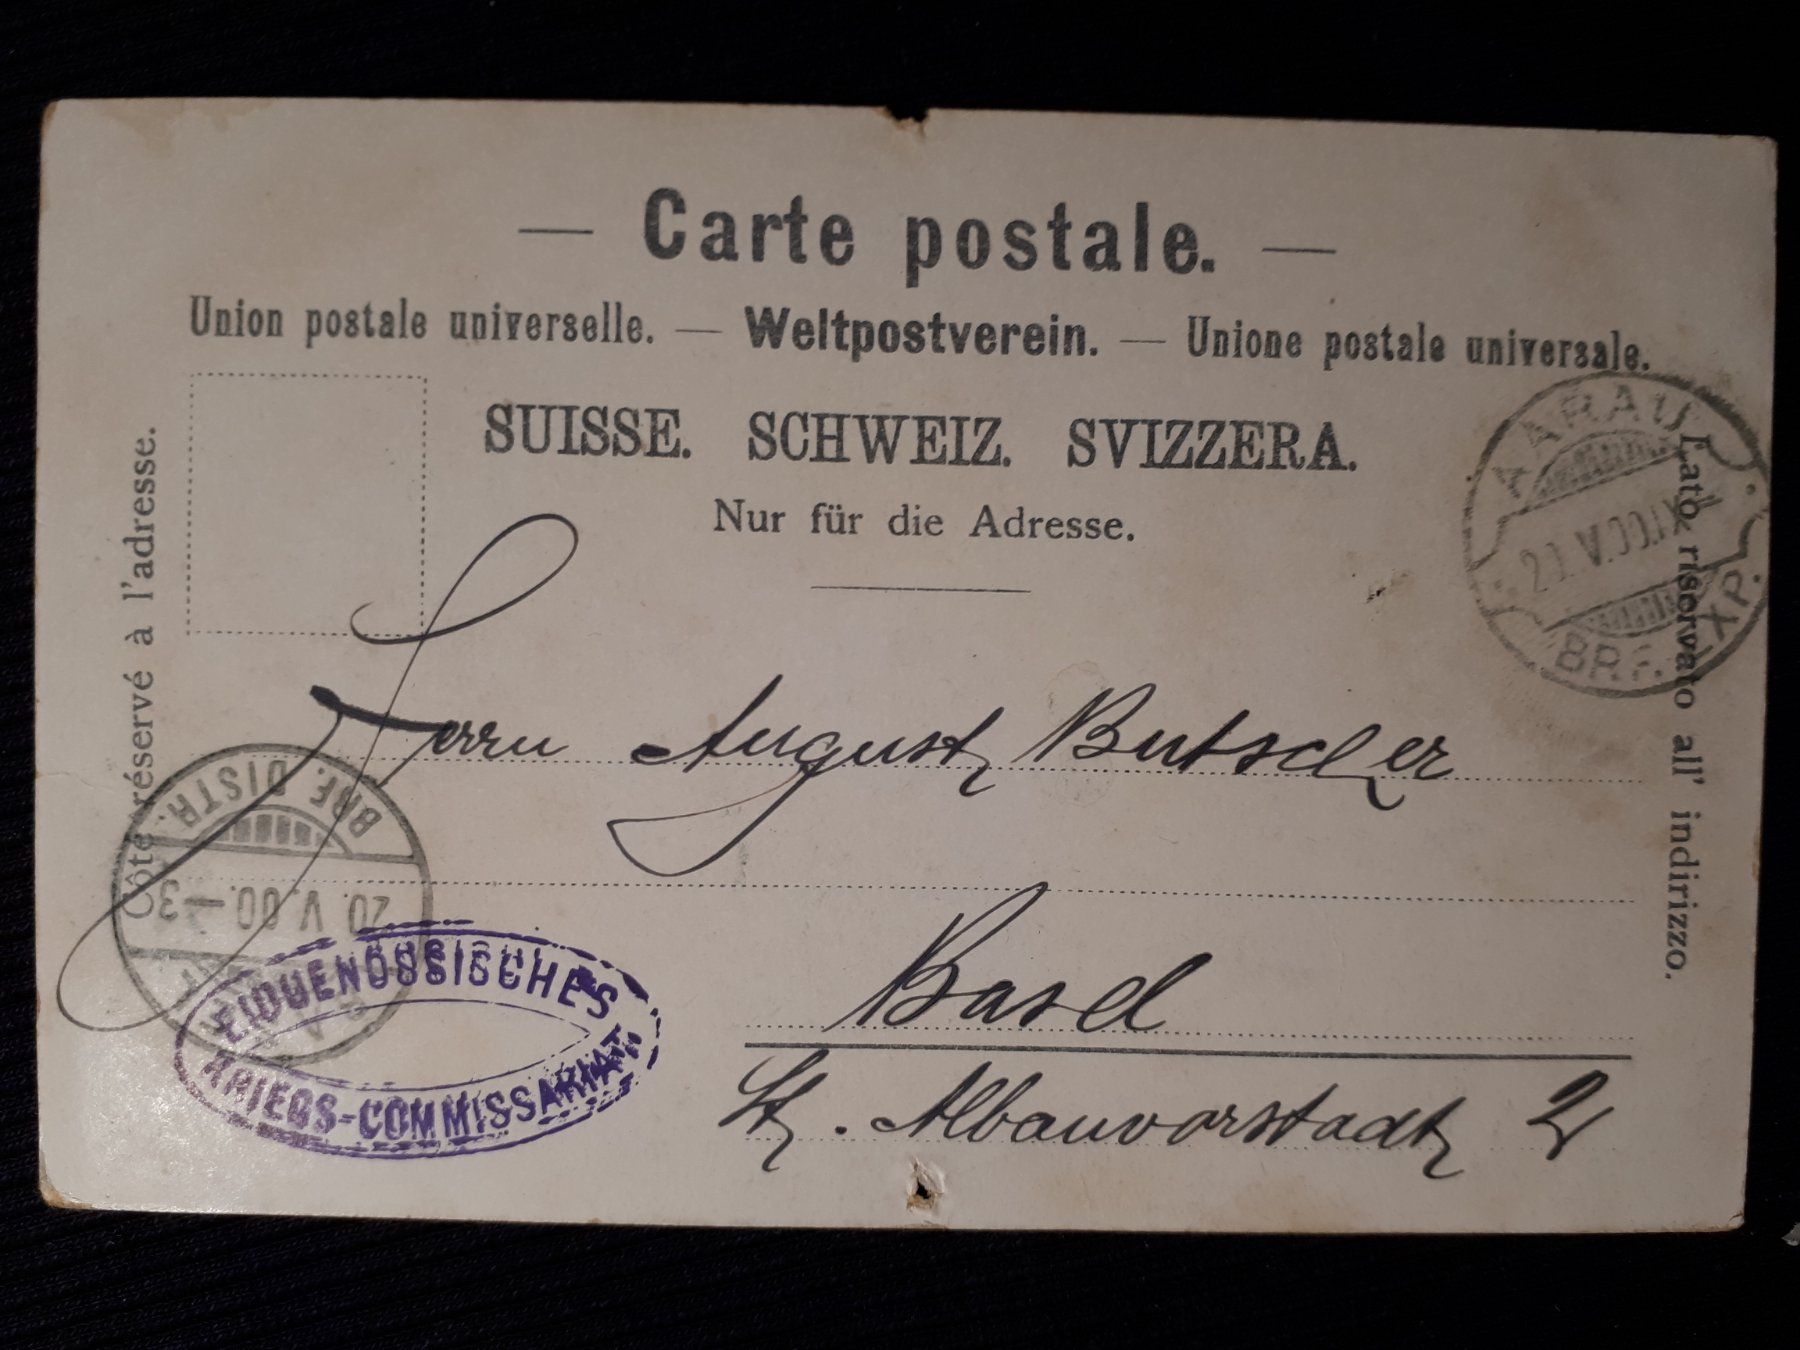 — Carte postale. —
Union postale universelle. — Weltpostverein. — Unione postale universale.
SUISSE. SCHWEIZ. SVIZZERA.
Nur für die Adresse.
Côté réservé à l'adresse.
Lato riservato all' indirizzo.
AARAU
20. V. 00. IX
BRF. EXP.
Herrn August Butscher
BRF. DISTR.
20. V. 00. – 3
Basel
St. Albanvorstadt 2
EIDGENÖSSISCHES
KRIEGS-COMMISSARIAT